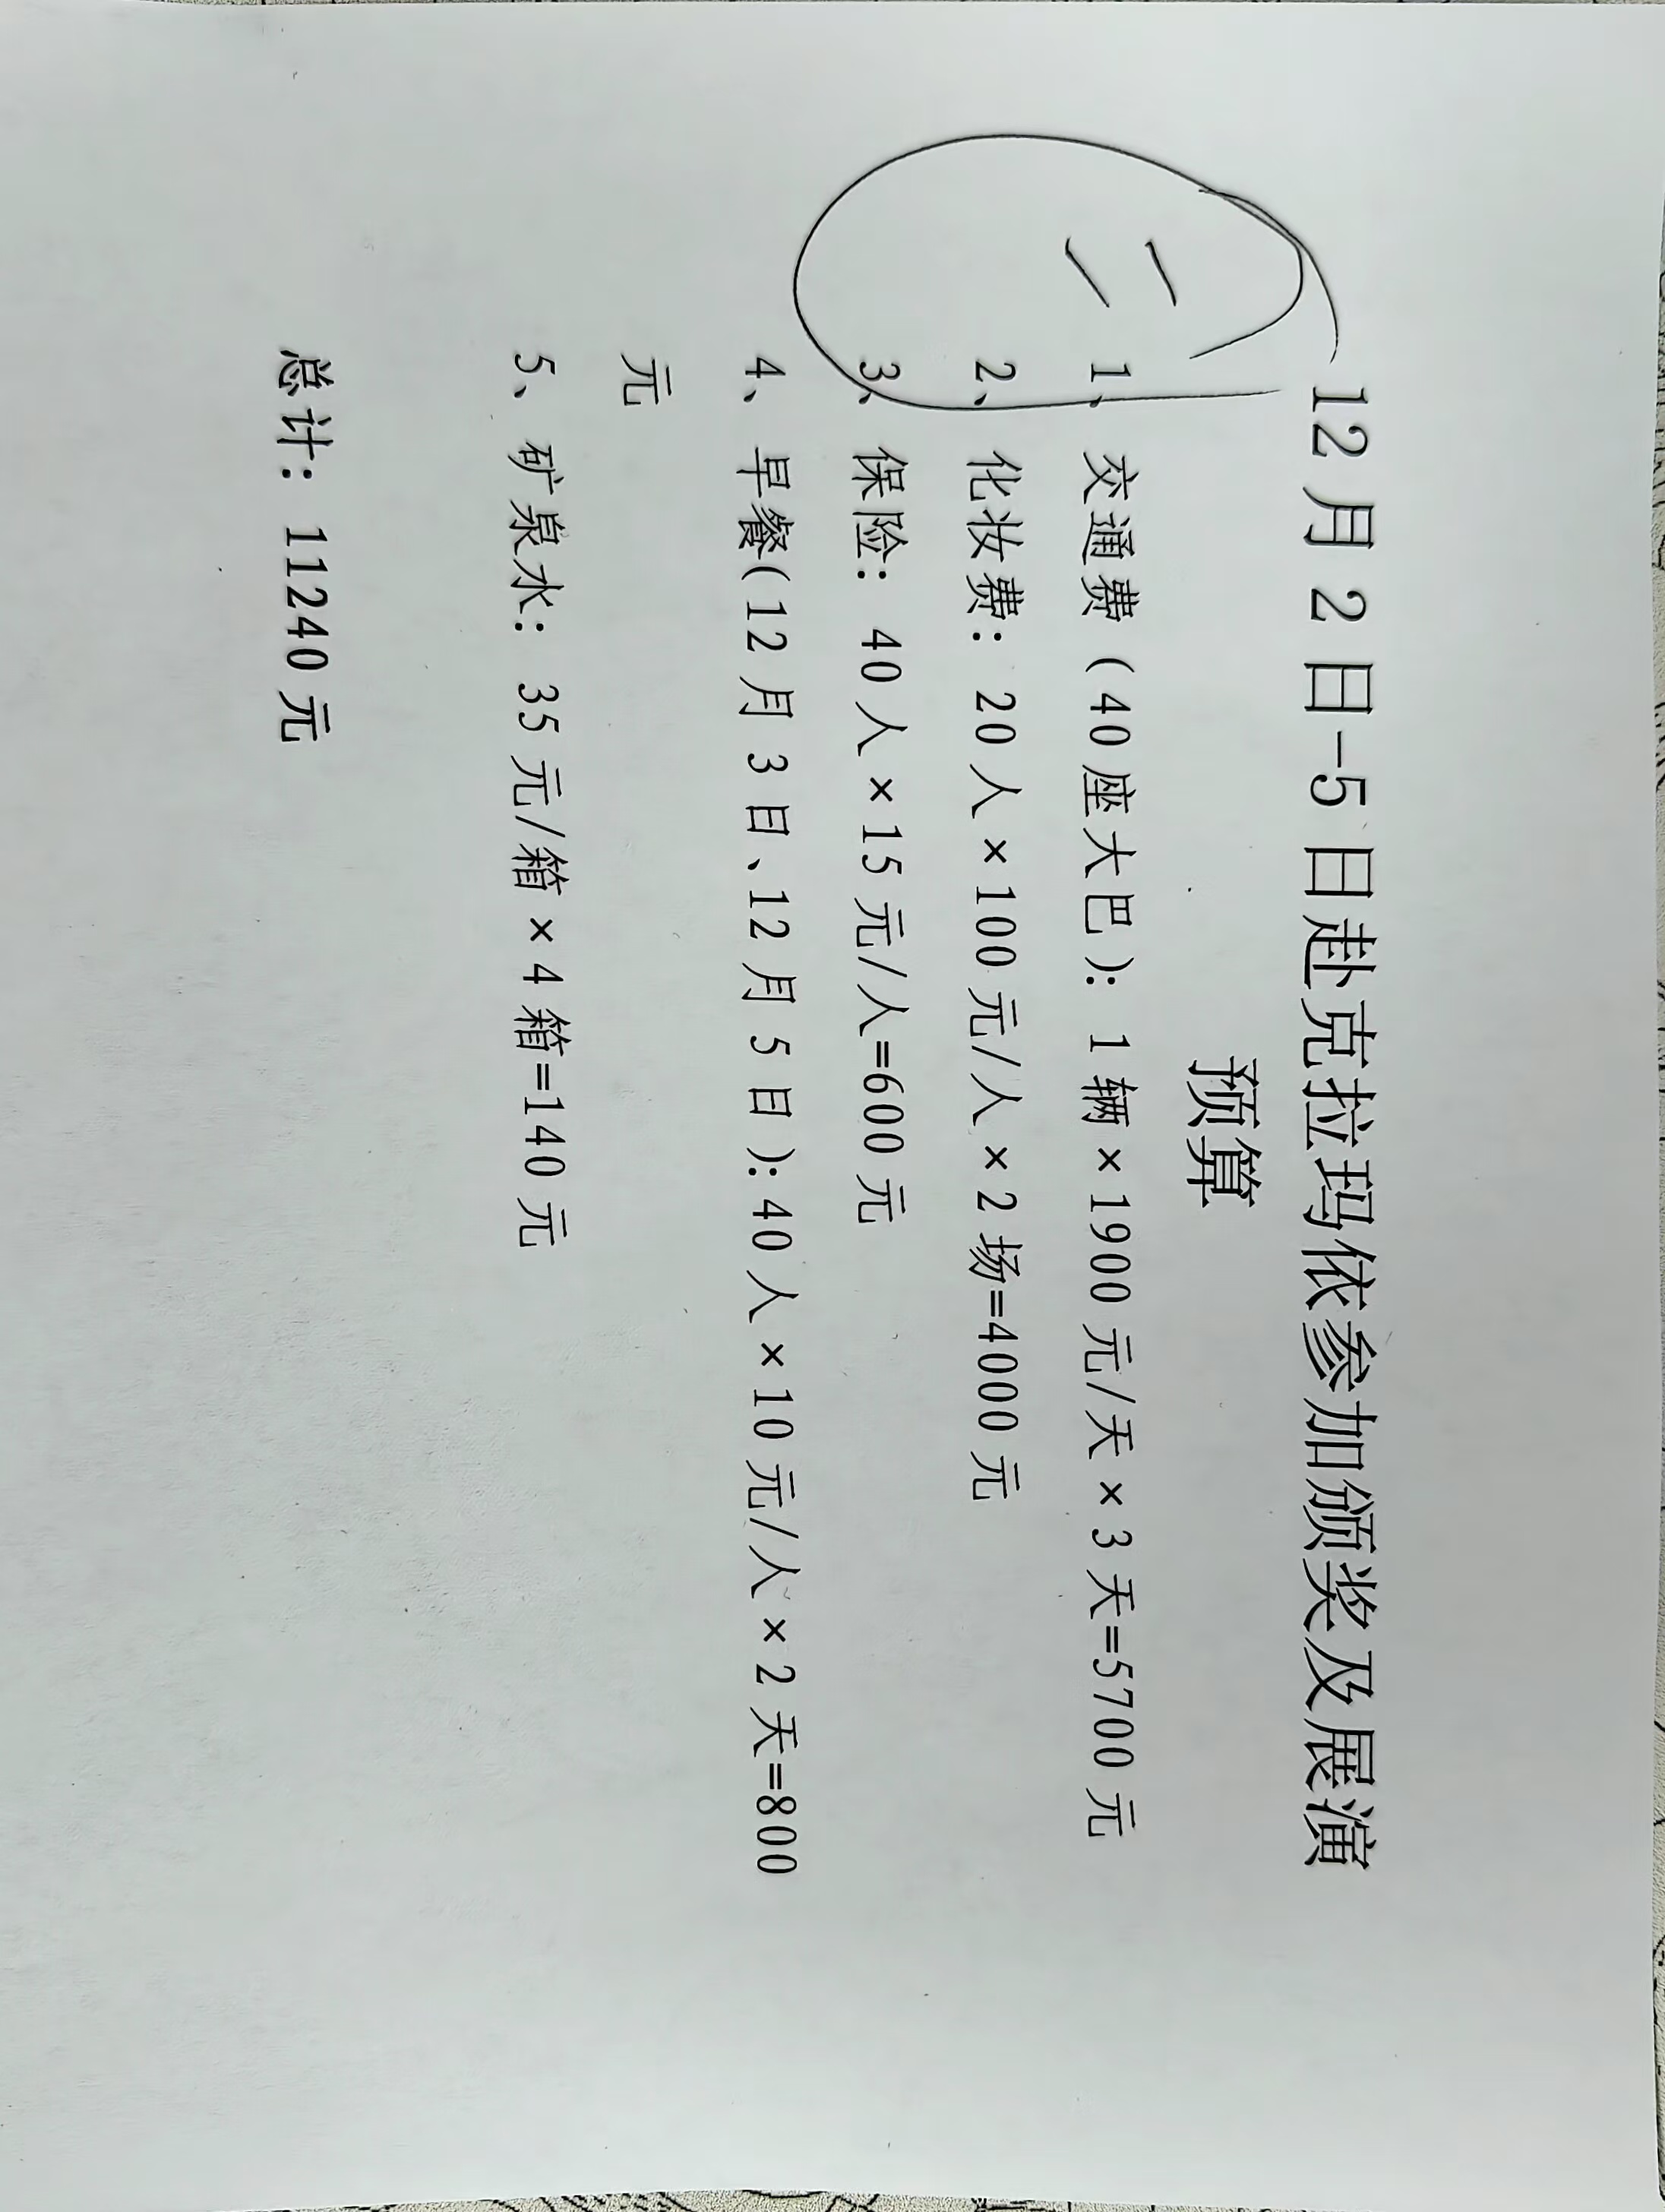 12月2日-5日赴克拉玛依参加颁奖及展演
预算
二
1、交通费（40座大巴）：1辆×1900元/天×3天=5700元
2、化妆费：20人×100元/人×2场=4000元
3、保险：40人×15元/人=600元
4、早餐(12月3日、12月5日):40人×10元/人×2天=800
元
5、矿泉水：35元/箱×4箱=140元
总计：11240元